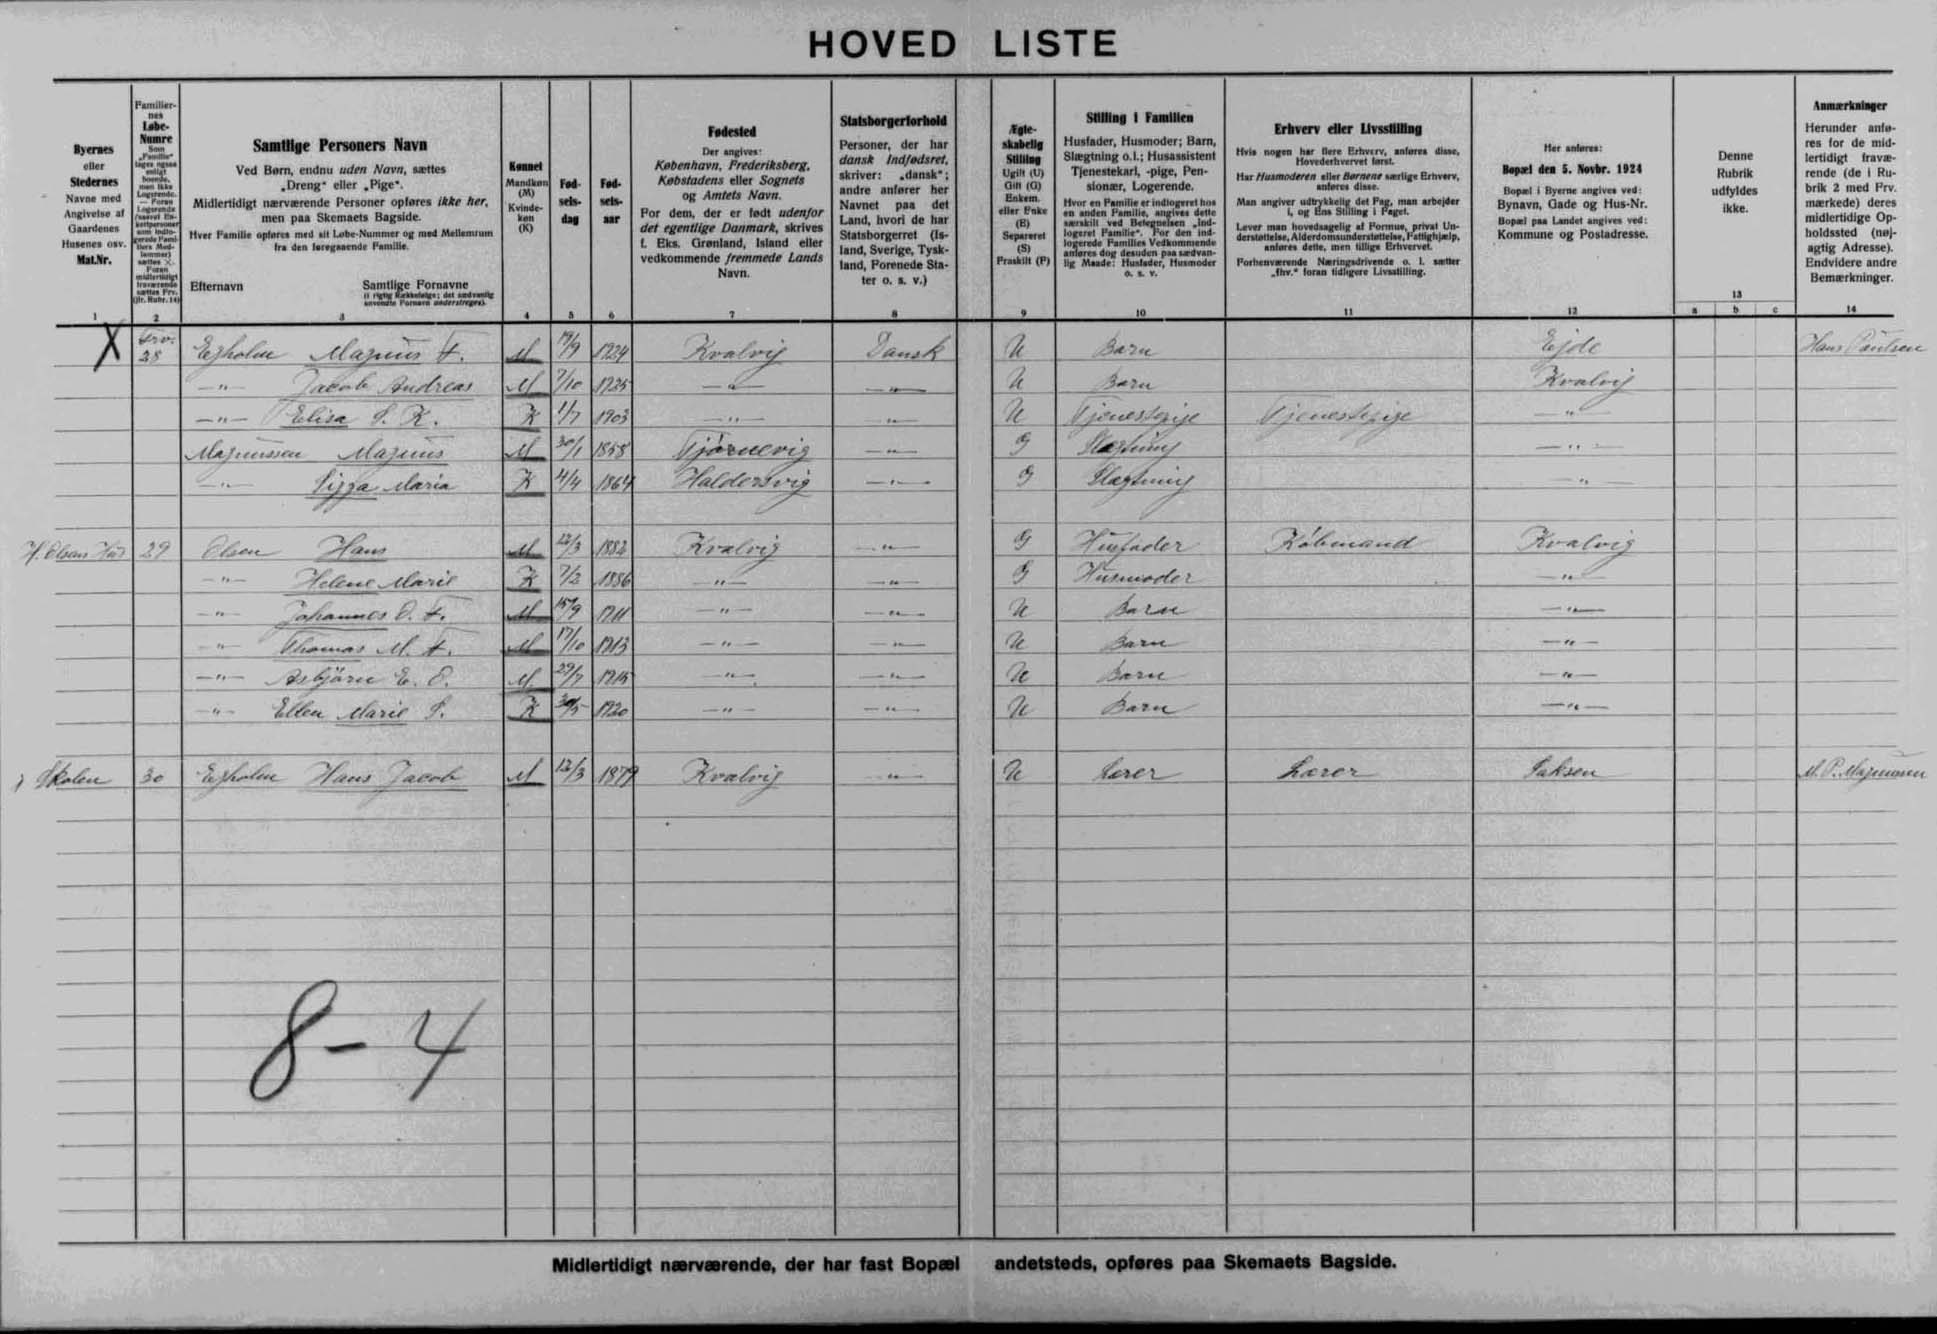 HOVED LISTE
Byernes
eller
Stedernes
Navne med
Angivelse af
Gaardenes
Husenes osv.
Mat.Nr.
1
Familier-
nes
Løbe-
Numre
2
Samtlige Personers Navn
Ved Børn, endnu uden Navn, sættes
„Dreng" eller „Pige".
Midlertidigt nærværende Personer opføres ikke her,
men paa Skemaets Bagside.
Hver Familie opføres med sit Løbe-Nummer og med Mellemrum
fra den foregaaende Familie.
Efternavn
Samtlige Fornavne
(i rigtig Rækkefølge; det sædvanlig
anvendte Fornavn understreges).
3
Kønnet
Mandkøn
(M)
Kvinde-
køn
(K)
4
Fød-
sels-
dag
5
Fød-
sels-
aar
6
Fødested
Der angives:
København, Frederiksberg,
Købstadens eller Sognets
og Amtets Navn.
For dem, der er født udenfor
det egentlige Danmark, skrives
f. Eks. Grønland, Island eller
vedkommende fremmede Lands
Navn.
7
Statsborgerforhold
Personer, der har
dansk Indfødsret,
skriver: „dansk";
andre anfører her
Navnet paa det
Land, hvori de har
Statsborgerret (Is-
land, Sverige, Tysk-
land, Forenede Sta-
ter o. s. v.)
8
Ægte-
skabelig
Stilling
Ugift (U)
Gift (G)
Enkem.
eller Enke
(E)
Separeret
(S)
Fraskilt (F)
9
Stilling i Familien
Husfader, Husmoder; Barn,
Slægtning o.l.; Husassistent
Tjenestekarl, -pige, Pen-
sionær, Logerende.
Hvor en Familie er indlogeret hos
en anden Familie, angives dette
særskilt ved Betegnelsen „ind-
logeret Familie". For den ind-
logerede Families Vedkommende
anføres dog desuden paa sædvan-
lig Maade: Husfader, Husmoder
o. s. v.
10
Erhverv eller Livsstilling
Hvis nogen har flere Erhverv, anføres disse,
Hovederhvervet først.
Har Husmoderen eller Børnene særlige Erhverv,
anføres disse.
Man angiver udtrykkelig det Fag, man arbejder
i, og Ens Stilling i Faget.
Lever man hovedsagelig af Formue, privat Un-
derstøttelse, Alderdomsunderstøttelse, Fattighjælp,
anføres dette, men tillige Erhvervet.
Forhenværende Næringsdrivende o. l. sætter
„fhv." foran tidligere Livsstilling.
11
Her anføres:
Bopæl den 5. Novbr. 1924
Bopæl i Byerne angives ved:
Bynavn, Gade og Hus-Nr.
Bopæl paa Landet angives ved:
Kommune og Postadresse.
12
Denne
Rubrik
udfyldes
ikke.
13
a b c
Anmærkninger
Herunder anfø-
res for de mid-
lertidigt fravæ-
rende (de i Ru-
brik 2 med Frv.
mærkede) deres
midlertidige Op-
holdssted (nøj-
agtig Adresse).
Endvidere andre
Bemærkninger.
14
X Frv. 28 Egholm Magnus F. M 19/9 1924 Kvalvig Dansk U Barn Ejde Hans Paulsen
—"— Jacob Andreas M 7/10 1925 —"— —"— U Barn Kvalvig
—"— Elisa S. K. K 1/7 1903 —"— —"— U Tjenestepige Tjenestepige —"—
Magnussen Magnus M 30/1 1858 Tjørnevig —"— G Slægtning —"—
—"— Sigga Maria K 4/4 1864 Haldersvig —"— G Slægtning —"—
H. Olsens Hus 29 Olsen Hans M 12/3 1882 Kvalvig —"— G Husfader Købmand Kvalvig
—"— Helene Marie K 7/2 1886 —"— —"— G Husmoder —"—
—"— Johannes O. F. M 15/9 1911 —"— —"— U Barn —"—
—"— Thomas M. F. M 17/10 1913 —"— —"— U Barn —"—
—"— Asbjörn E. O. M 29/7 1915 —"— —"— U Barn —"—
—"— Ellen Marie S. K 30/5 1920 —"— —"— U Barn —"—
Skolen 30 Egholm Hans Jacob M 12/3 1879 Kvalvig —"— U Lærer Lærer Saksen M. P. Magnussen
8 – 4
Midlertidigt nærværende, der har fast Bopæl andetsteds, opføres paa Skemaets Bagside.